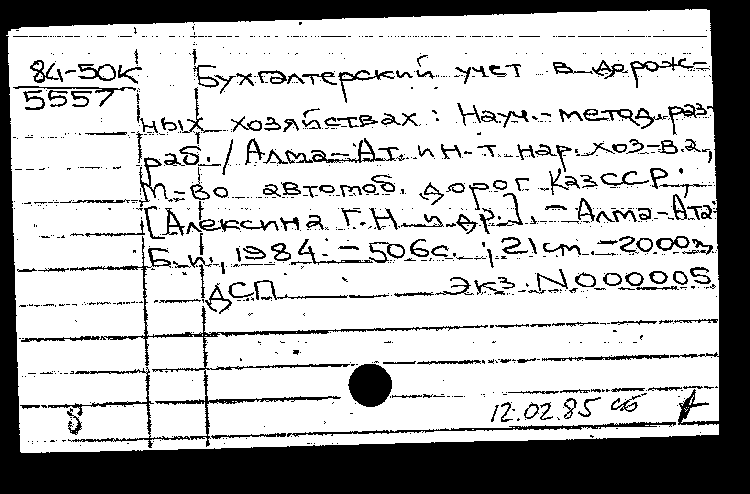 84-50к
5557
Бухгалтерский учет в дорож-
ных хозяйствах: Науч.-метод. раз-
раб. / Алма-Ат. ин-т нар. хоз-ва,
М-во автомоб. дорог КазССР;
[Алексина Г.Н. и др.]. - Алма-Ата:
Б.и., 1984. - 506с.; 21см. - 2000э,
ДСП Экз. N000005
8 12.02.85